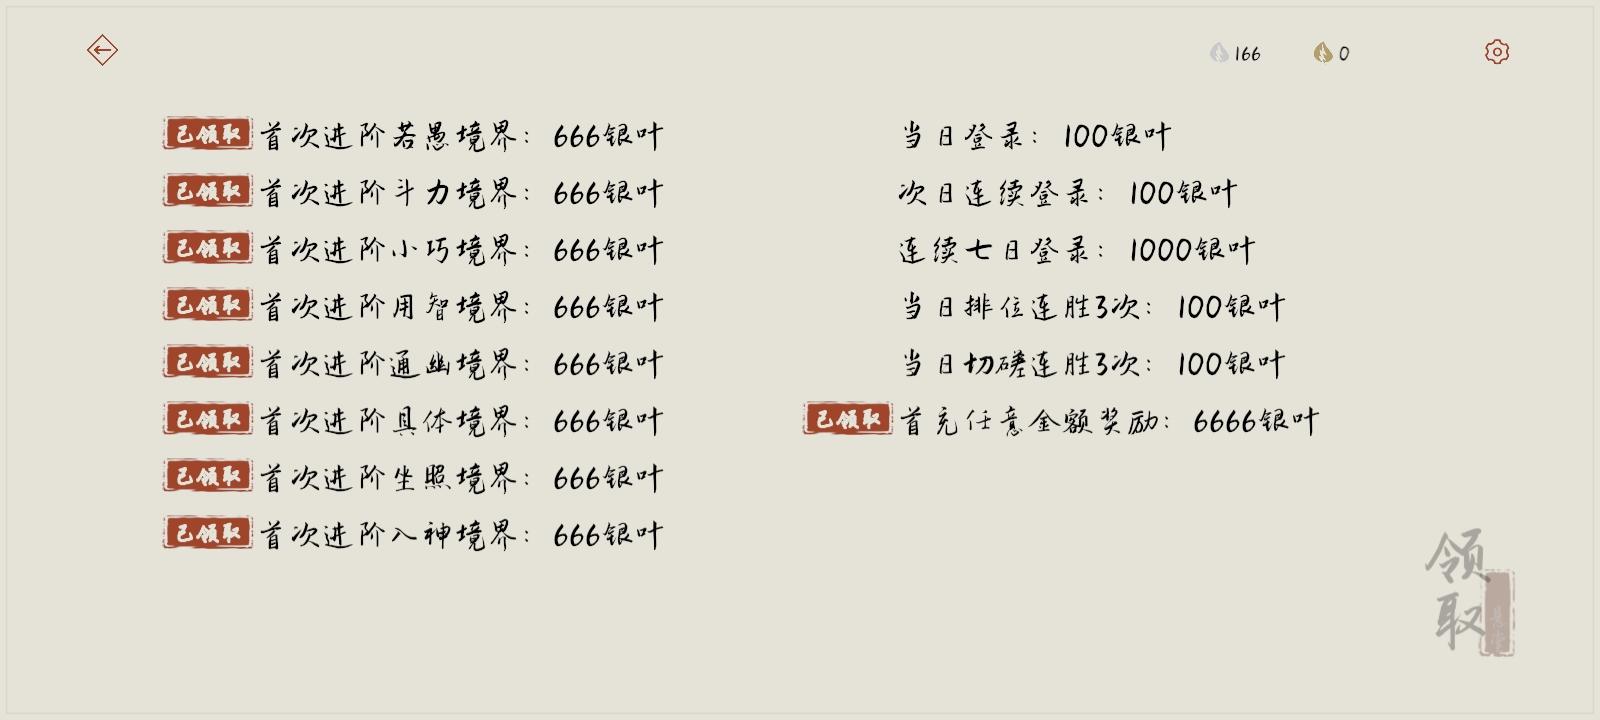 166
0
已领取 首次进阶若愚境界：666银叶
已领取 首次进阶斗力境界：666银叶
已领取 首次进阶小巧境界：666银叶
已领取 首次进阶用智境界：666银叶
已领取 首次进阶通幽境界：666银叶
已领取 首次进阶具体境界：666银叶
已领取 首次进阶坐照境界：666银叶
已领取 首次进阶入神境界：666银叶
当日登录：100银叶
次日连续登录：100银叶
连续七日登录：1000银叶
当日排位连胜3次：100银叶
当日切磋连胜3次：100银叶
已领取 首充任意金额奖励：6666银叶
领取